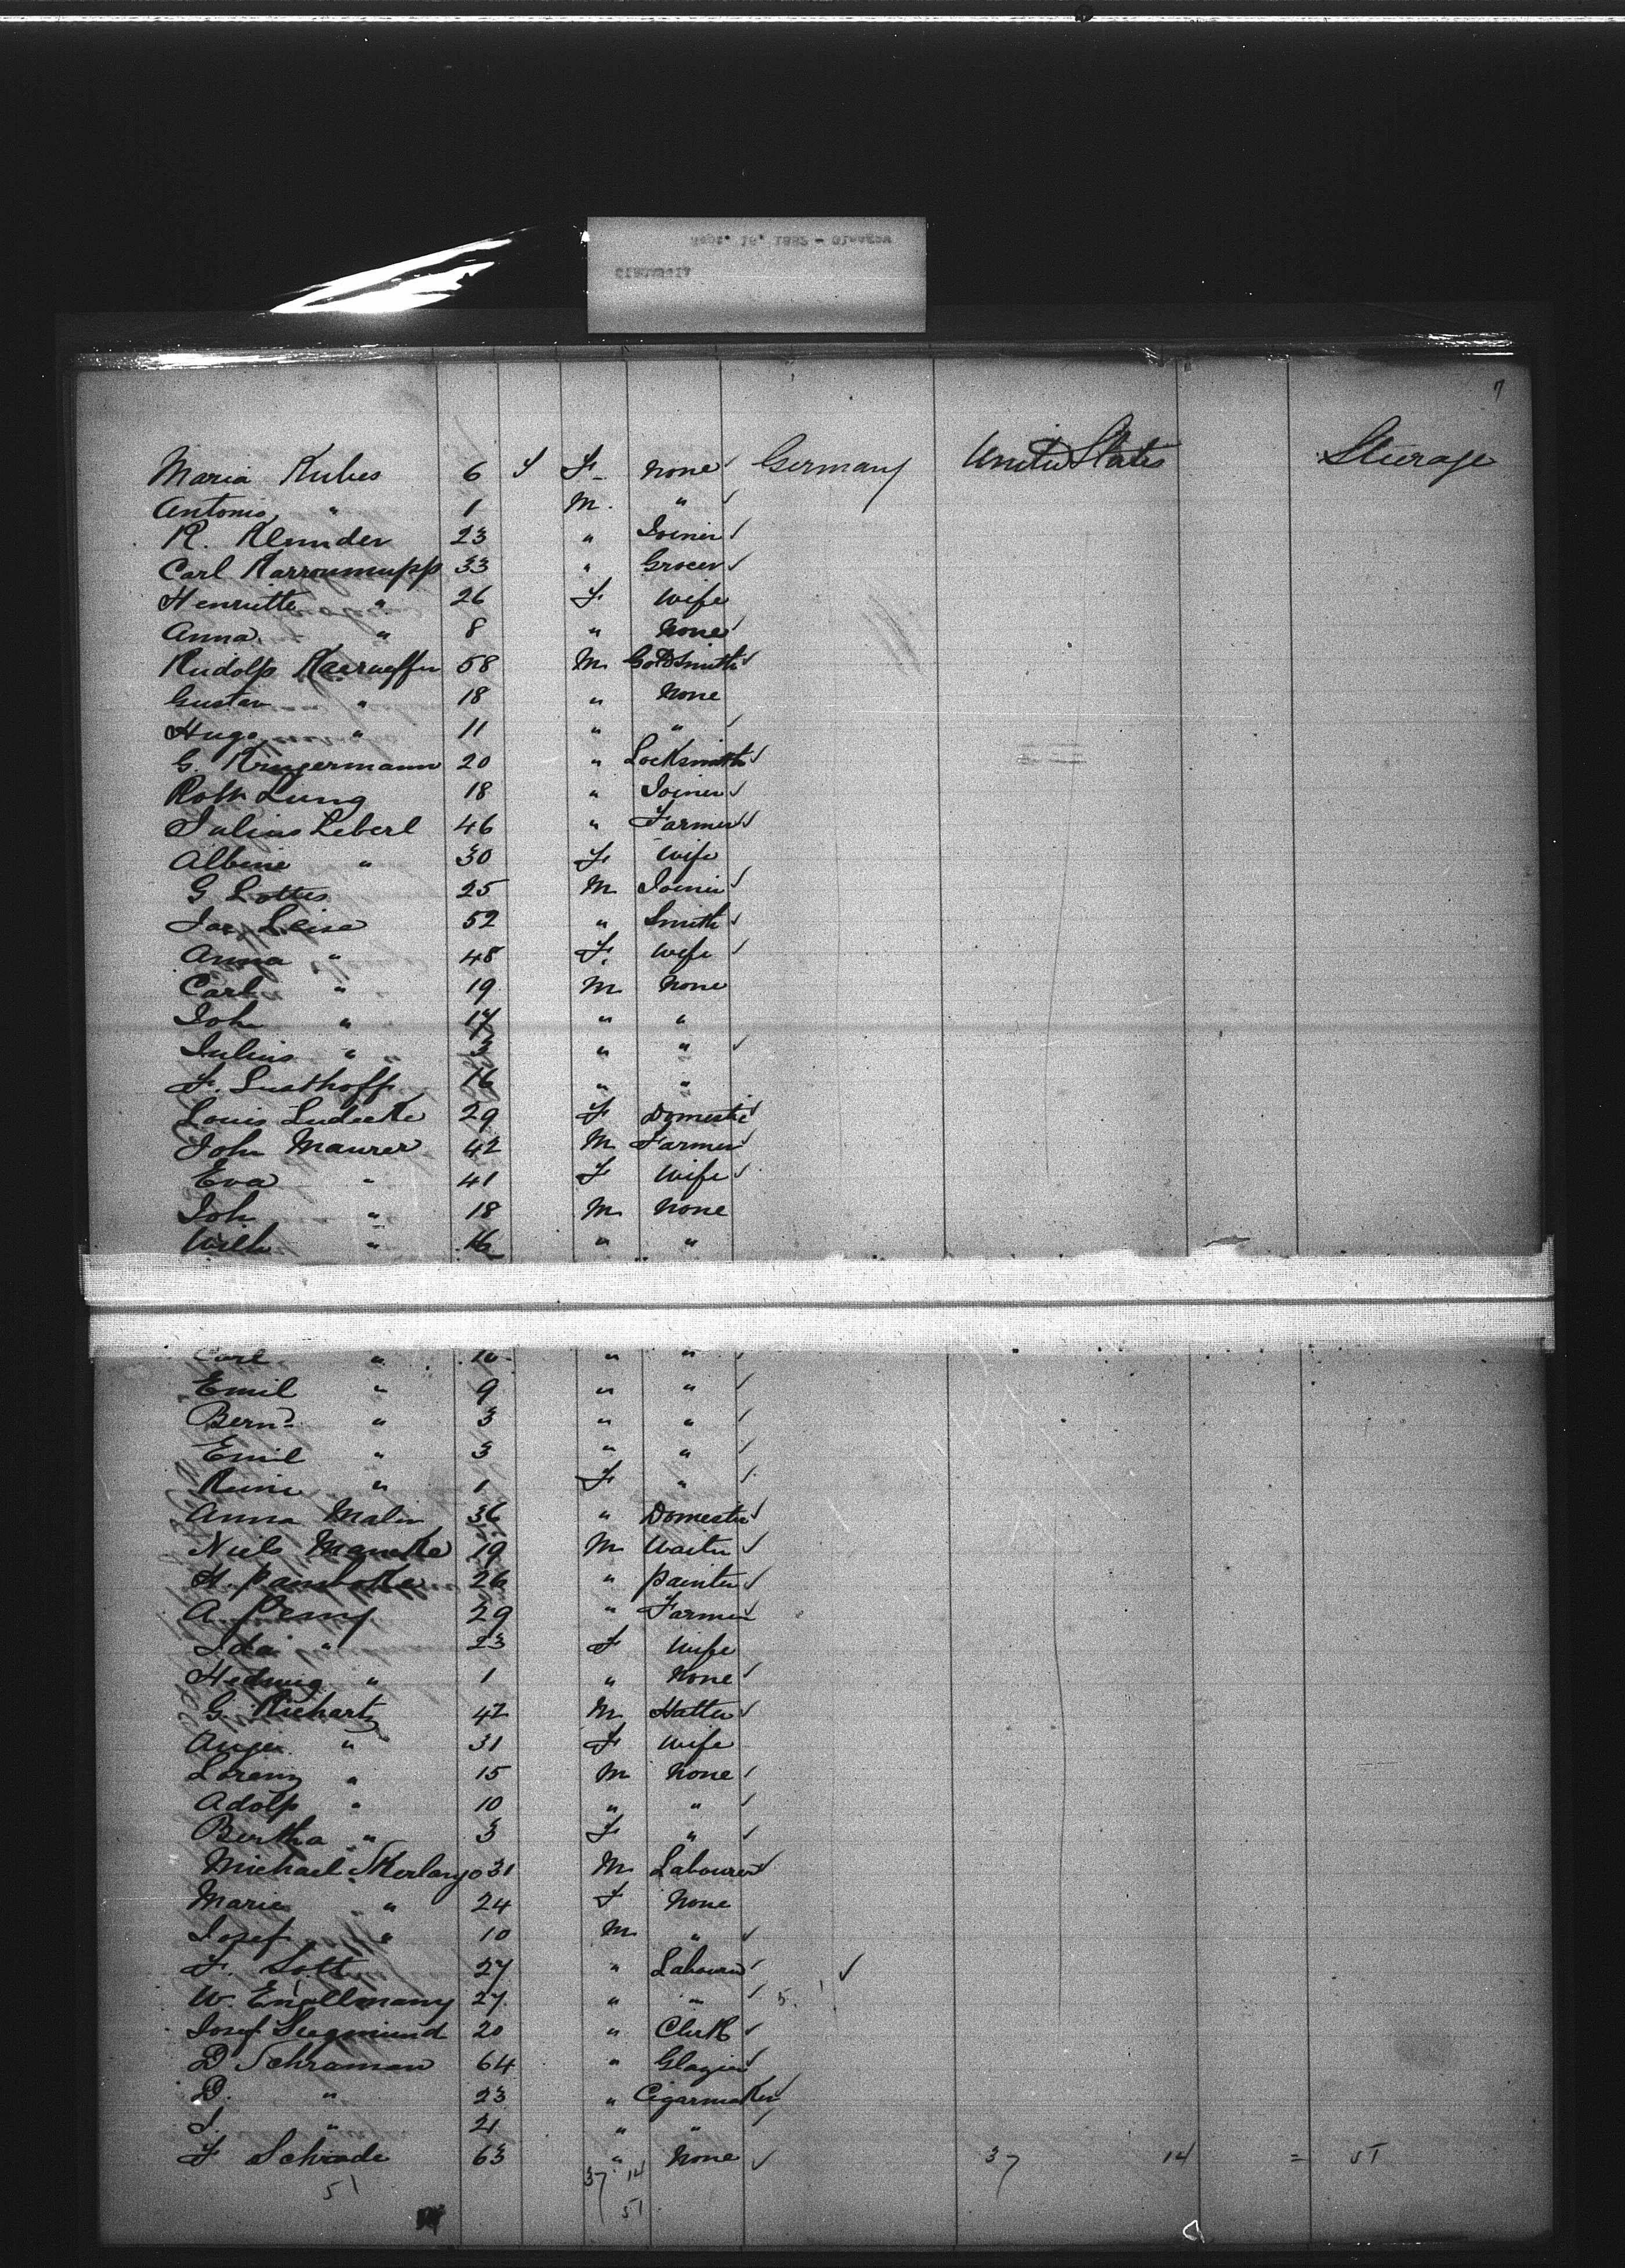 7
Maria Kubes 6 F None Germany United States Steerage
Antonio " 1 M. "
R. Klunder 23 " Joiner
Carl Karroumupp 33 " Grocer
Henriette " 26 F Wife
Anna " 8 " None
Rudolf 58 M Goldsmith
Gustav " 18 " None
Hugo " 11 " "
G. Krugermann 20 " Locksmith
Robt Lung 18 " Joiner
Julius Leberl 46 " Farmer
Albine " 30 F Wife
G Lottes 25 M Joiner
Jac. Leise 52 " Smith
Anna " 48 F. Wife
Carl " 19 M None
Joh " 17 " "
Julius " 3 " "
F. Lusthoff 16 " "
Louis Ludecke 29 F Domestic
John Maurer 42 M Farmer
Eva " 41 F Wife
Joh " 18 M None
Wilh " 16 " "
Carl " 10 " "
Emil " 9 " "
Bernd " 3 " "
Emil " 3 " "
" 1 F "
Anna Malin 36 " Domestic
Niels Mancke 19 M Waiter
H. 26 " Painter
A. 29 " Farmer
Ida " 23 F Wife
Hedwig " 1 " None
G. Richartz 42 M Hatter
" 31 F Wife
Lorenz " 15 M None
Adolf " 10 " "
Bertha " 3 F "
Michael Skorlanyo 31 M Labourer
Marie " 24 F None
Josef " 10 M "
F. Sott 27 " Labourer
W. 27 " "
Josef Siegmund 20 " Clerk
D Schraman 64 " Glazier
D. " 23 " Cigarmaker
J. " 21 " "
F Schrade 63 " None 37 14 = 51
51 37 14
51